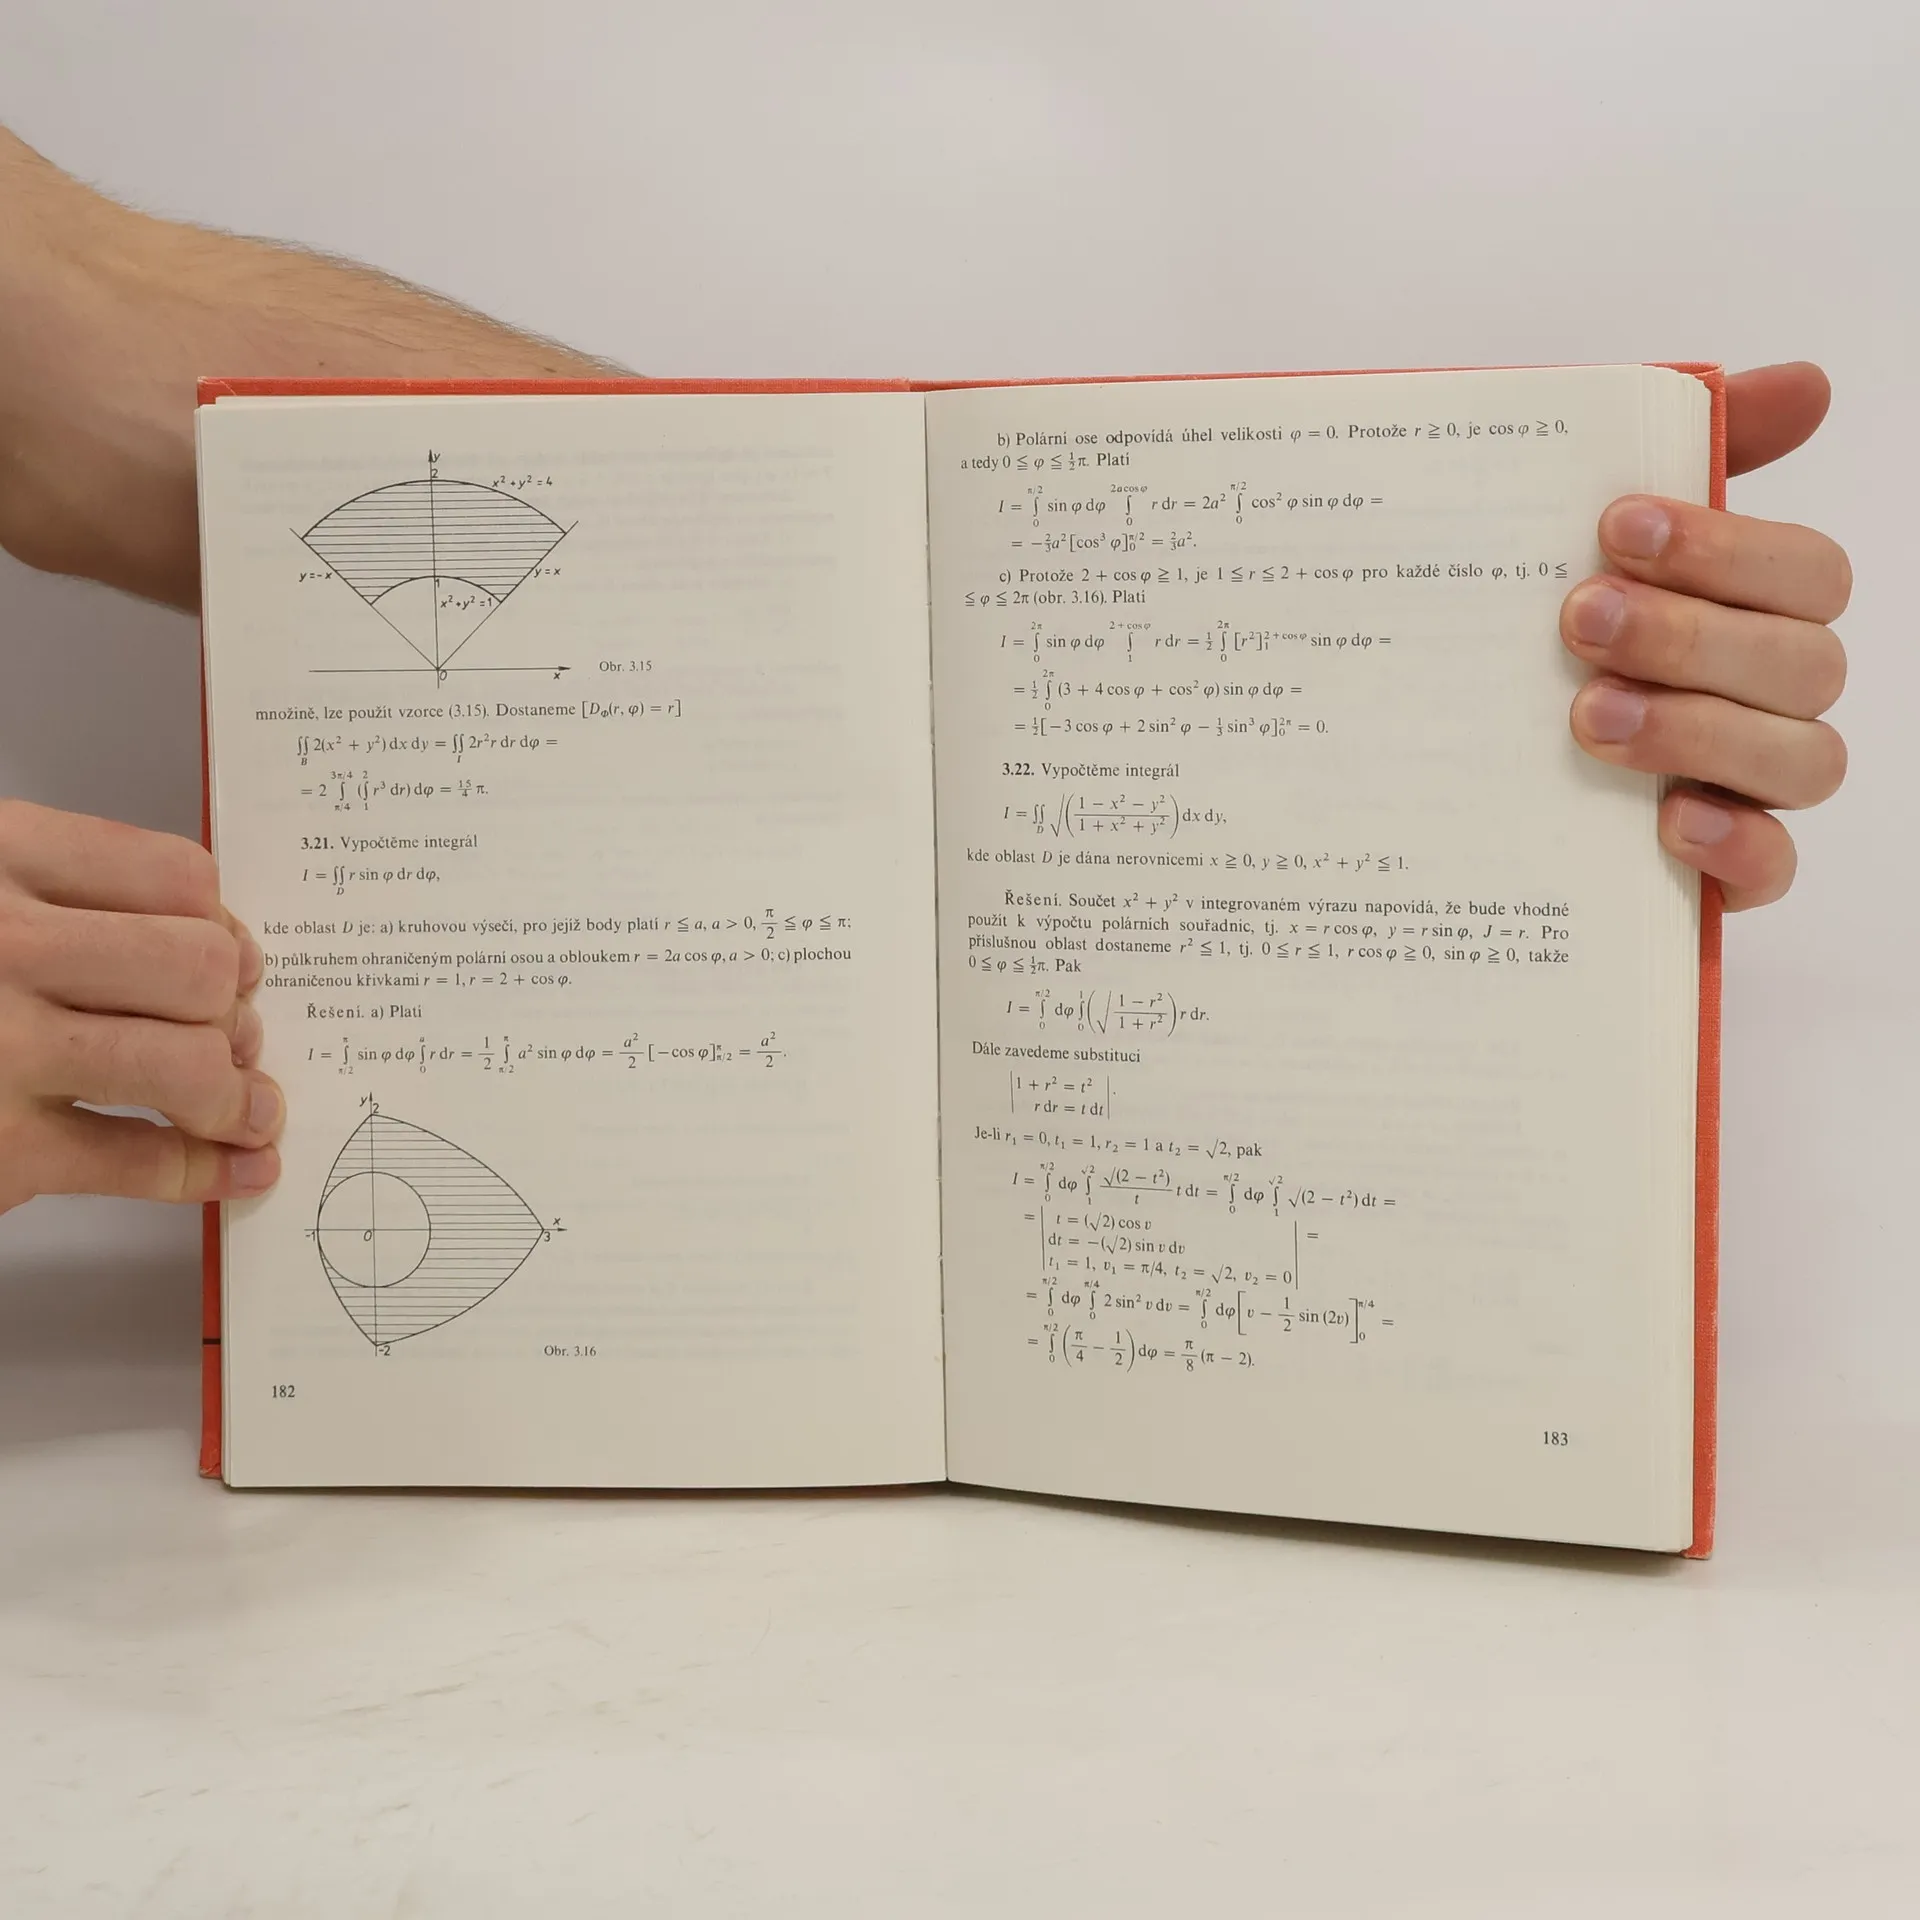 y
2
x² + y² = 4
y = -x
1
y = x
x² + y² = 1
0
x
Obr. 3.15
množině, lze použít vzorce (3.15). Dostaneme [D_Φ(r, φ) = r]
∬_B 2(x² + y²) dx dy = ∬_I 2r²r dr dφ =
= 2 ∫_{π/4}^{3π/4} (∫_1^2 r³ dr) dφ = 15/4 π.
3.21. Vypočtěme integrál
I = ∬_D r sin φ dr dφ,
kde oblast D je: a) kruhovou výsečí, pro jejíž body platí r ≦ a, a > 0, π/2 ≦ φ ≦ π;
b) půlkruhem ohraničeným polární osou a obloukem r = 2a cos φ, a > 0; c) plochou
ohraničenou křivkami r = 1, r = 2 + cos φ.
Řešení. a) Platí
I = ∫_{π/2}^{π} sin φ dφ ∫_0^a r dr = 1/2 ∫_{π/2}^{π} a² sin φ dφ = a²/2 [-cos φ]_{π/2}^{π} = a²/2.
y
2
-1
0
x
3
-2
Obr. 3.16
182
b) Polární ose odpovídá úhel velikosti φ = 0. Protože r ≧ 0, je cos φ ≧ 0,
a tedy 0 ≦ φ ≦ ½π. Platí
I = ∫_0^{π/2} sin φ dφ ∫_0^{2a cos φ} r dr = 2a² ∫_0^{π/2} cos² φ sin φ dφ =
= -⅔a² [cos³ φ]_0^{π/2} = ⅔a².
c) Protože 2 + cos φ ≧ 1, je 1 ≦ r ≦ 2 + cos φ pro každé číslo φ, tj. 0 ≦
≦ φ ≦ 2π (obr. 3.16). Platí
I = ∫_0^{2π} sin φ dφ ∫_1^{2 + cos φ} r dr = ½ ∫_0^{2π} [r²]_1^{2 + cos φ} sin φ dφ =
= ½ ∫_0^{2π} (3 + 4 cos φ + cos² φ) sin φ dφ =
= ½[-3 cos φ + 2 sin² φ - ⅓ sin³ φ]_0^{2π} = 0.
3.22. Vypočtěme integrál
I = ∬_D √((1 - x² - y²)/(1 + x² + y²)) dx dy,
kde oblast D je dána nerovnicemi x ≧ 0, y ≧ 0, x² + y² ≦ 1.
Řešení. Součet x² + y² v integrovaném výrazu napovídá, že bude vhodné
použít k výpočtu polárních souřadnic, tj. x = r cos φ, y = r sin φ, J = r. Pro
příslušnou oblast dostaneme r² ≦ 1, tj. 0 ≦ r ≦ 1, r cos φ ≧ 0, sin φ ≧ 0, takže
0 ≦ φ ≦ ½π. Pak
I = ∫_0^{π/2} dφ ∫_0^1 (√((1 - r²)/(1 + r²))) r dr.
Dále zavedeme substituci
|1 + r² = t²|
|r dr = t dt|.
Je-li r₁ = 0, t₁ = 1, r₂ = 1 a t₂ = √2, pak
I = ∫_0^{π/2} dφ ∫_1^{√2} √(2 - t²)/t t dt = ∫_0^{π/2} dφ ∫_1^{√2} √(2 - t²) dt =
= |t = (√2) cos v
dt = -(√2) sin v dv
t₁ = 1, v₁ = π/4, t₂ = √2, v₂ = 0| =
= ∫_0^{π/2} dφ ∫_0^{π/4} 2 sin² v dv = ∫_0^{π/2} dφ [v - 1/2 sin (2v)]_0^{π/4} =
= ∫_0^{π/2} (π/4 - 1/2) dφ = π/8 (π - 2).
183